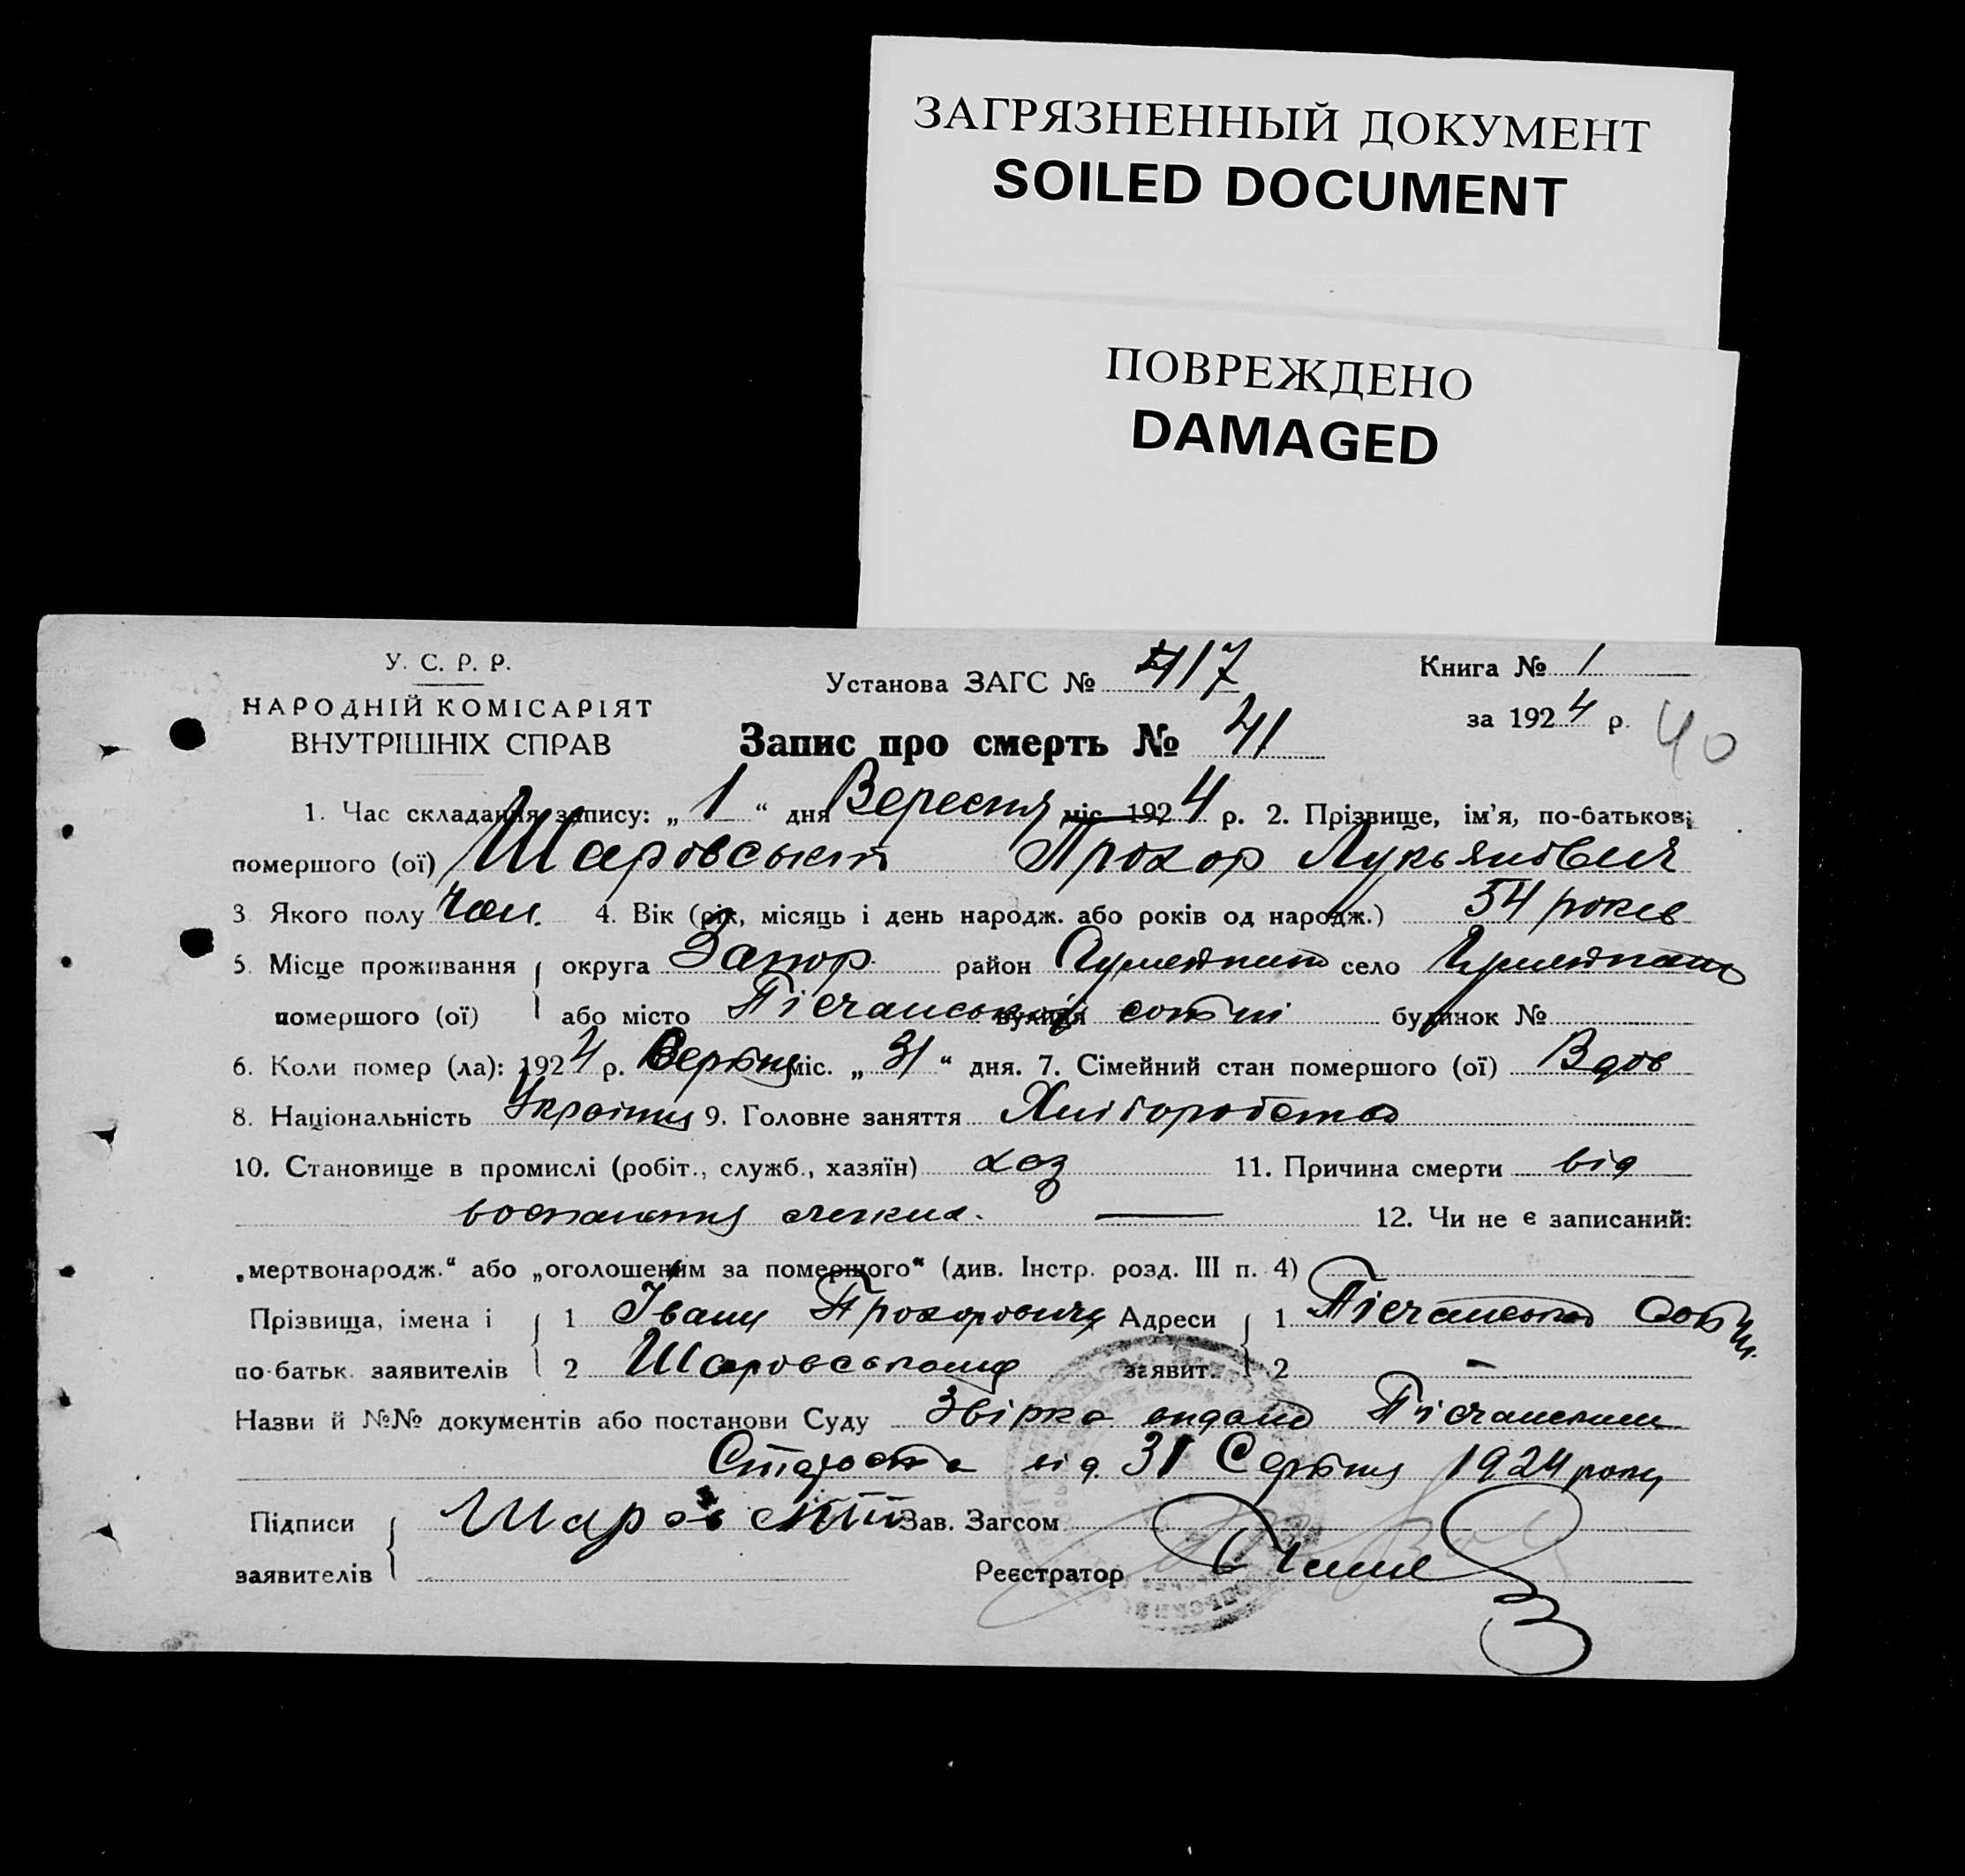 ЗАГРЯЗНЕННЫЙ ДОКУМЕНТ
SOILED DOCUMENT
ПОВРЕЖДЕНО
DAMAGED
У. С. Р. Р.
НАРОДНІЙ КОМІСАРІЯТ
ВНУТРІШНІХ СПРАВ
Установа ЗАГС № 417
Книга № 1
за 1924 р. 40
Запис про смерть № 41
1. Час складання запису: „ 1 “ дня Вересня міс. 1924 р. 2. Прізвище, ім'я, по-батькові
помершого (ої) Шаровський Прохор Лукьянович
3 Якого полу Чол. 4. Вік (рік, місяць і день народж. або років од народж.) 54 років
5. Місце проживання округа Запор. район село
помершого (ої) або місто Пісчанській вулиця сотні будинок №
6. Коли помер (ла): 1924 р. Серпня міс. „ 31 “ дня. 7. Сімейний стан помершого (ої) Вдов
8. Національність Україн 9. Головне заняття Хліборобство
10. Становище в промислі (робіт., служб., хазяїн) хаз 11. Причина смерти від
воспаления легких. — 12. Чи не є записаний:
„мертвонародж.“ або „оголошеним за помершого“ (див. Інстр. розд. III п. 4)
Прізвища, імена і 1 Івану Прохоровичу Адреси 1 Пісчанської Сотні
по-батьк. заявителів 2 Шаровському заявит. 2 -
Назви й №№ документів або постанови Суду видано Пісчанским
Староста від 31 Серпня 1924 року
Підписи Шаровский Зав. Загсом
заявителів Реєстратор